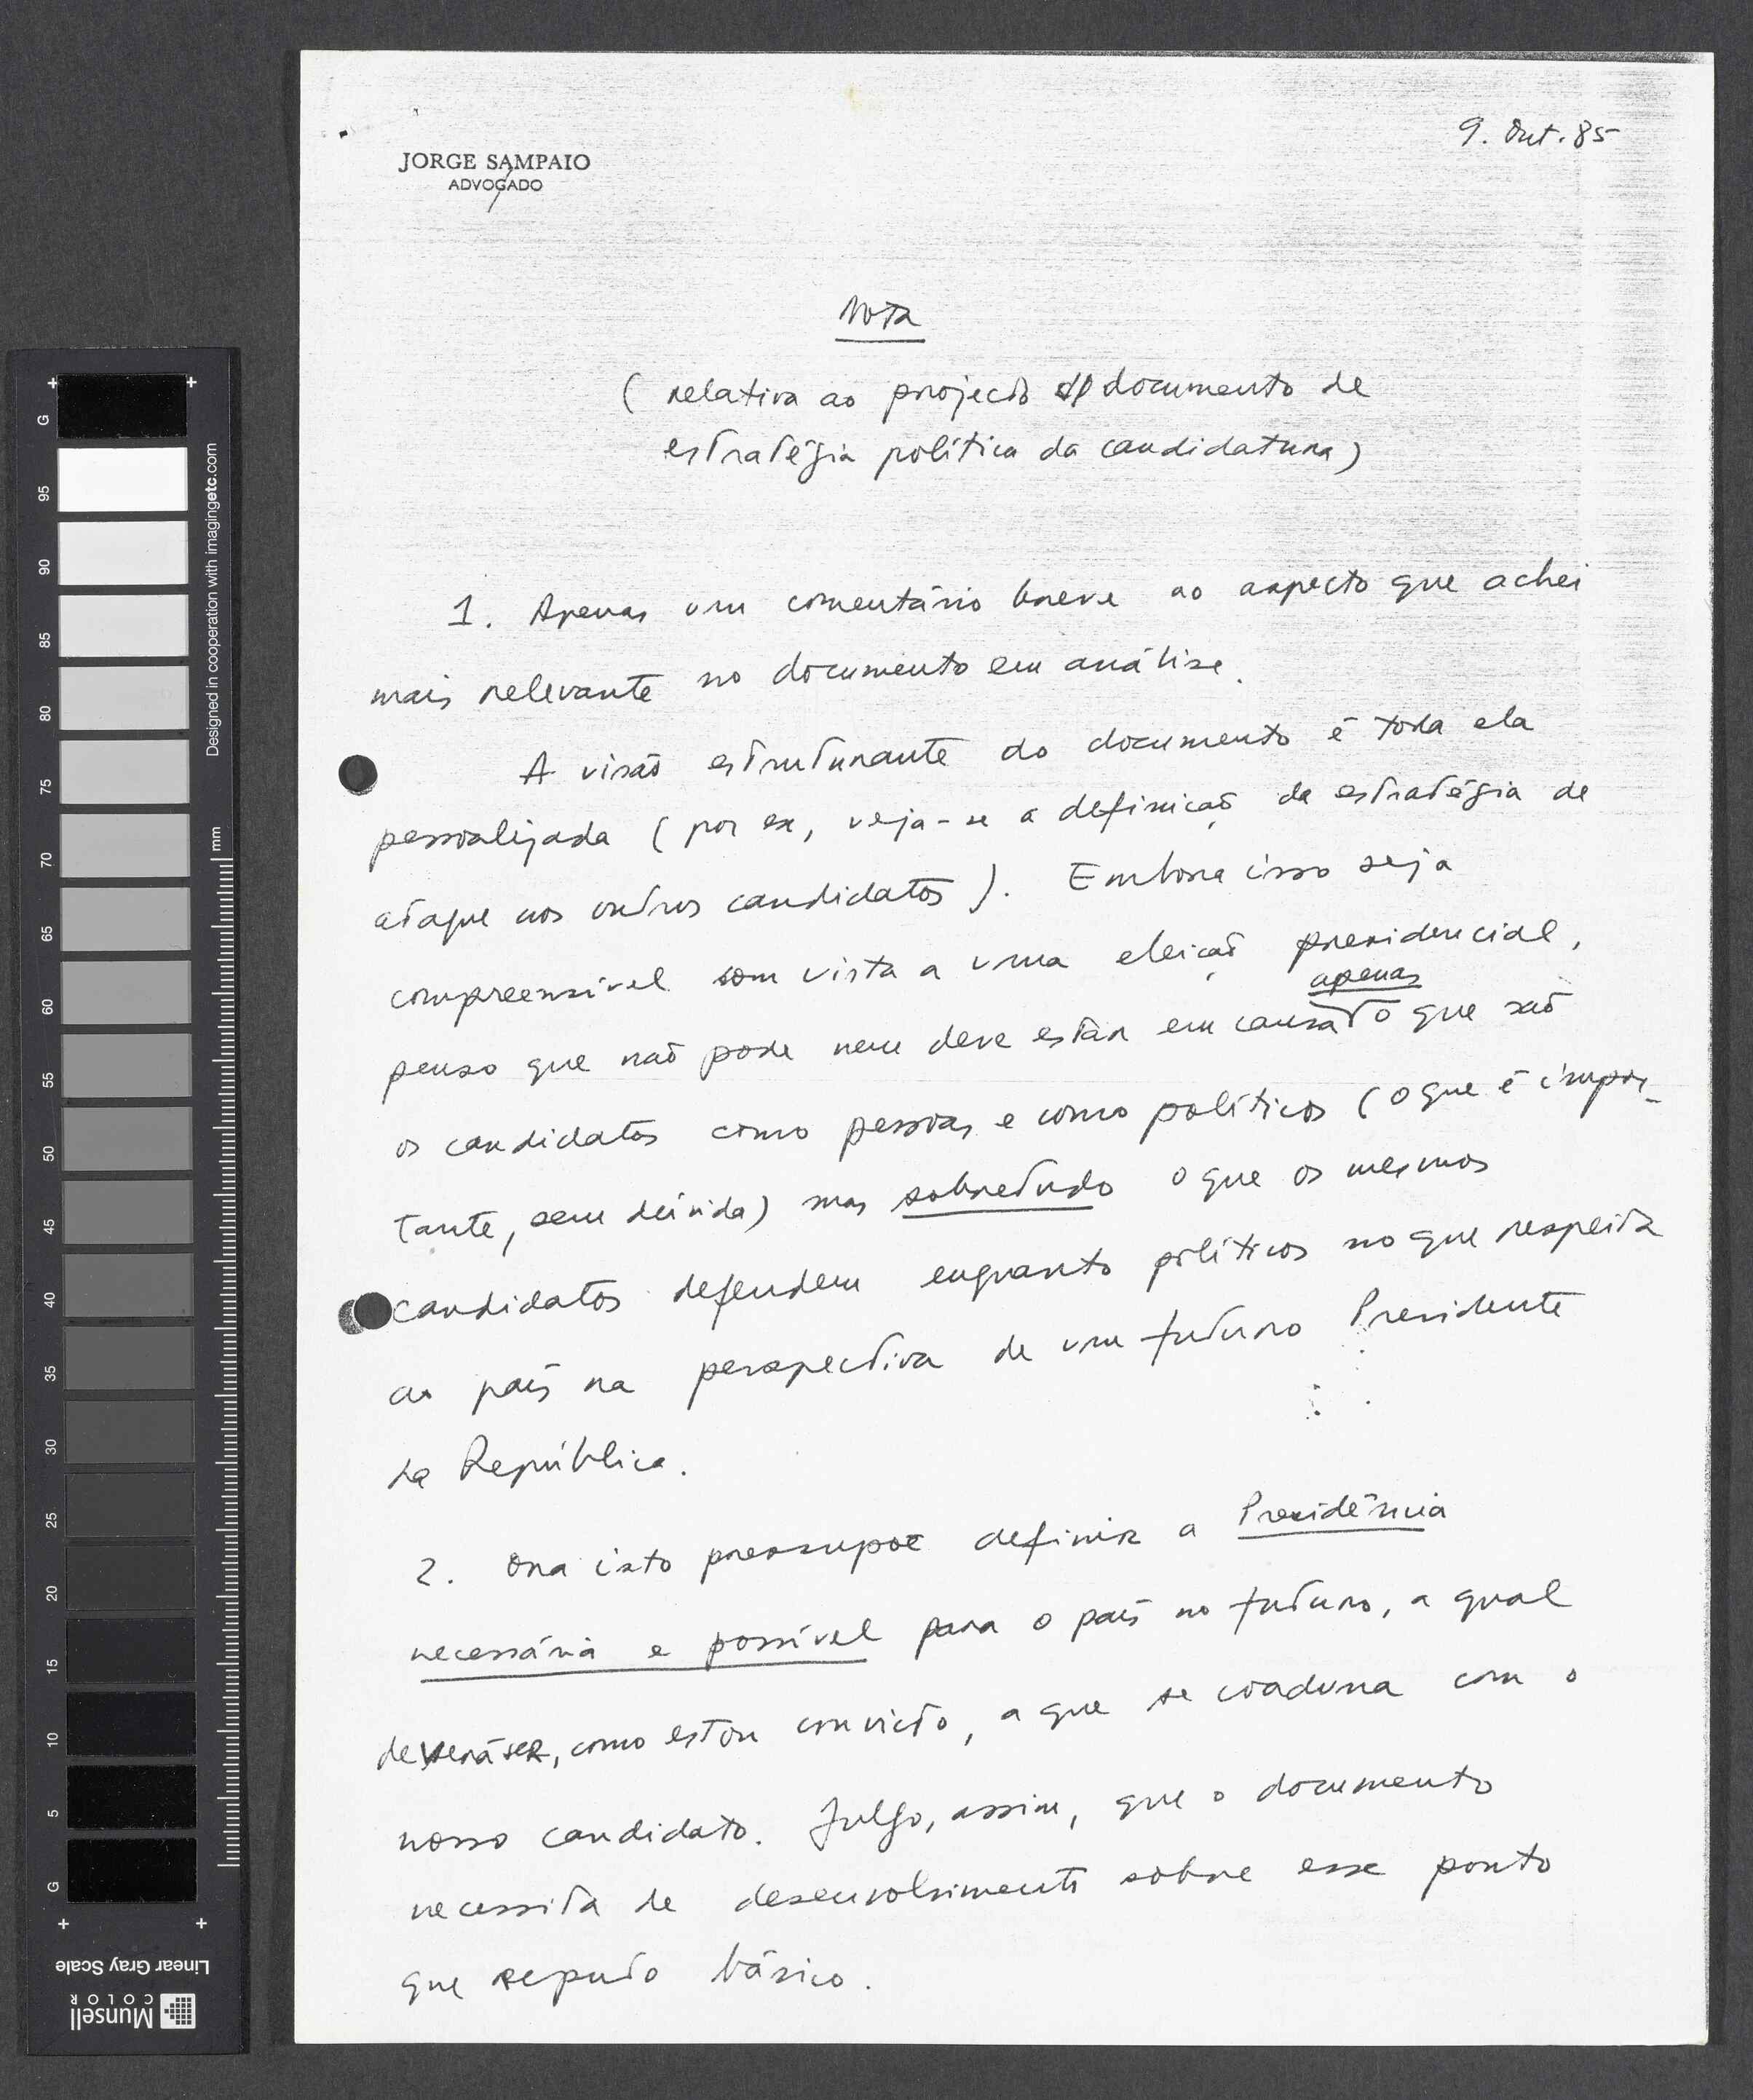 JORGE SAMPAIO
ADVOGADO
9. Out. 85
Nota
( relativa ao projecto documento de
estratégia política da candidatura)
1. Apenas um comentário breve ao aspecto que achei
mais relevante no documento em análise.
A visão estruturante do documento é toda ela
pessoalizada ( por ex, veja-se a definição da estratégia de
ataque aos outros candidatos ). Embora isso seja
compreensível com vista a uma eleição presidencial,
apenas
penso que não pode nem deve estar em causa o que são
os candidatos como pessoas e como políticos ( o que é impor-
tante, sem dúvida) mas sobretudo o que os mesmos
candidatos defendem enquanto políticos no que respeita
ao país na perspectiva de um futuro Presidente
da República.
2. Ora isto pressupõe definir a Presidência
necessária e possível para o país no futuro, a qual
deverá ser, como estou convicto, a que se coaduna com o
nosso candidato. Julgo, assim, que o documento
necessita de desenvolvimento sobre esse ponto
que reputo básico.
G
95
90
85
80
75
70
65
60
55
50
45
40
35
30
25
20
15
10
5
G
mm
Designed in cooperation with imagingetc.com
Linear Gray Scale
Munsell
COLOR